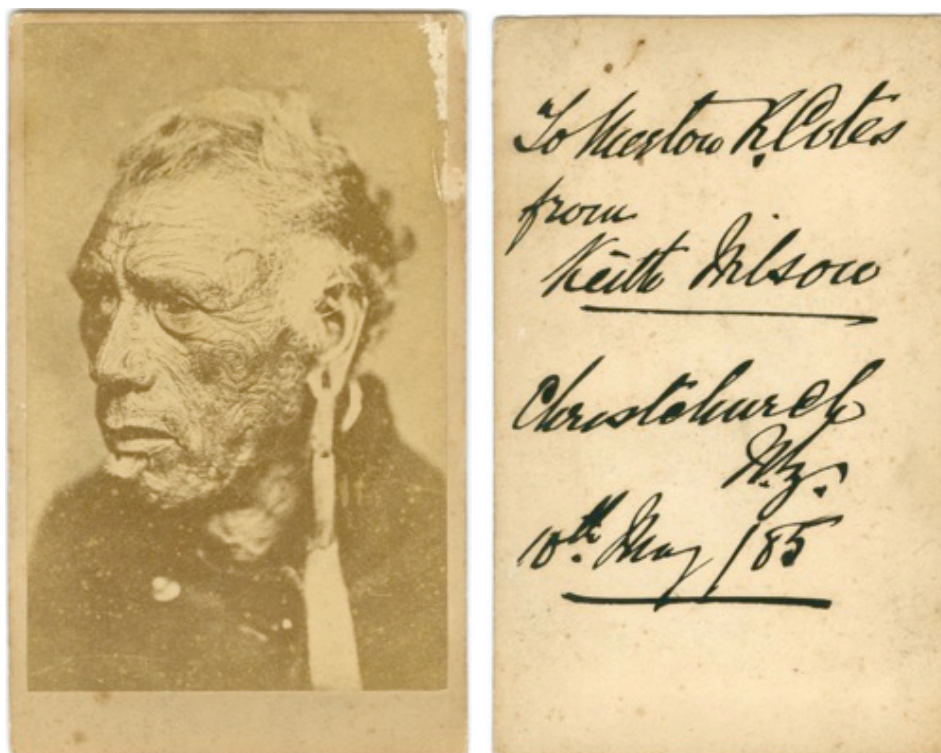 To Merton R. Cotes
from
Keith Wilson
Christchurch
N.Z.
10th May /85